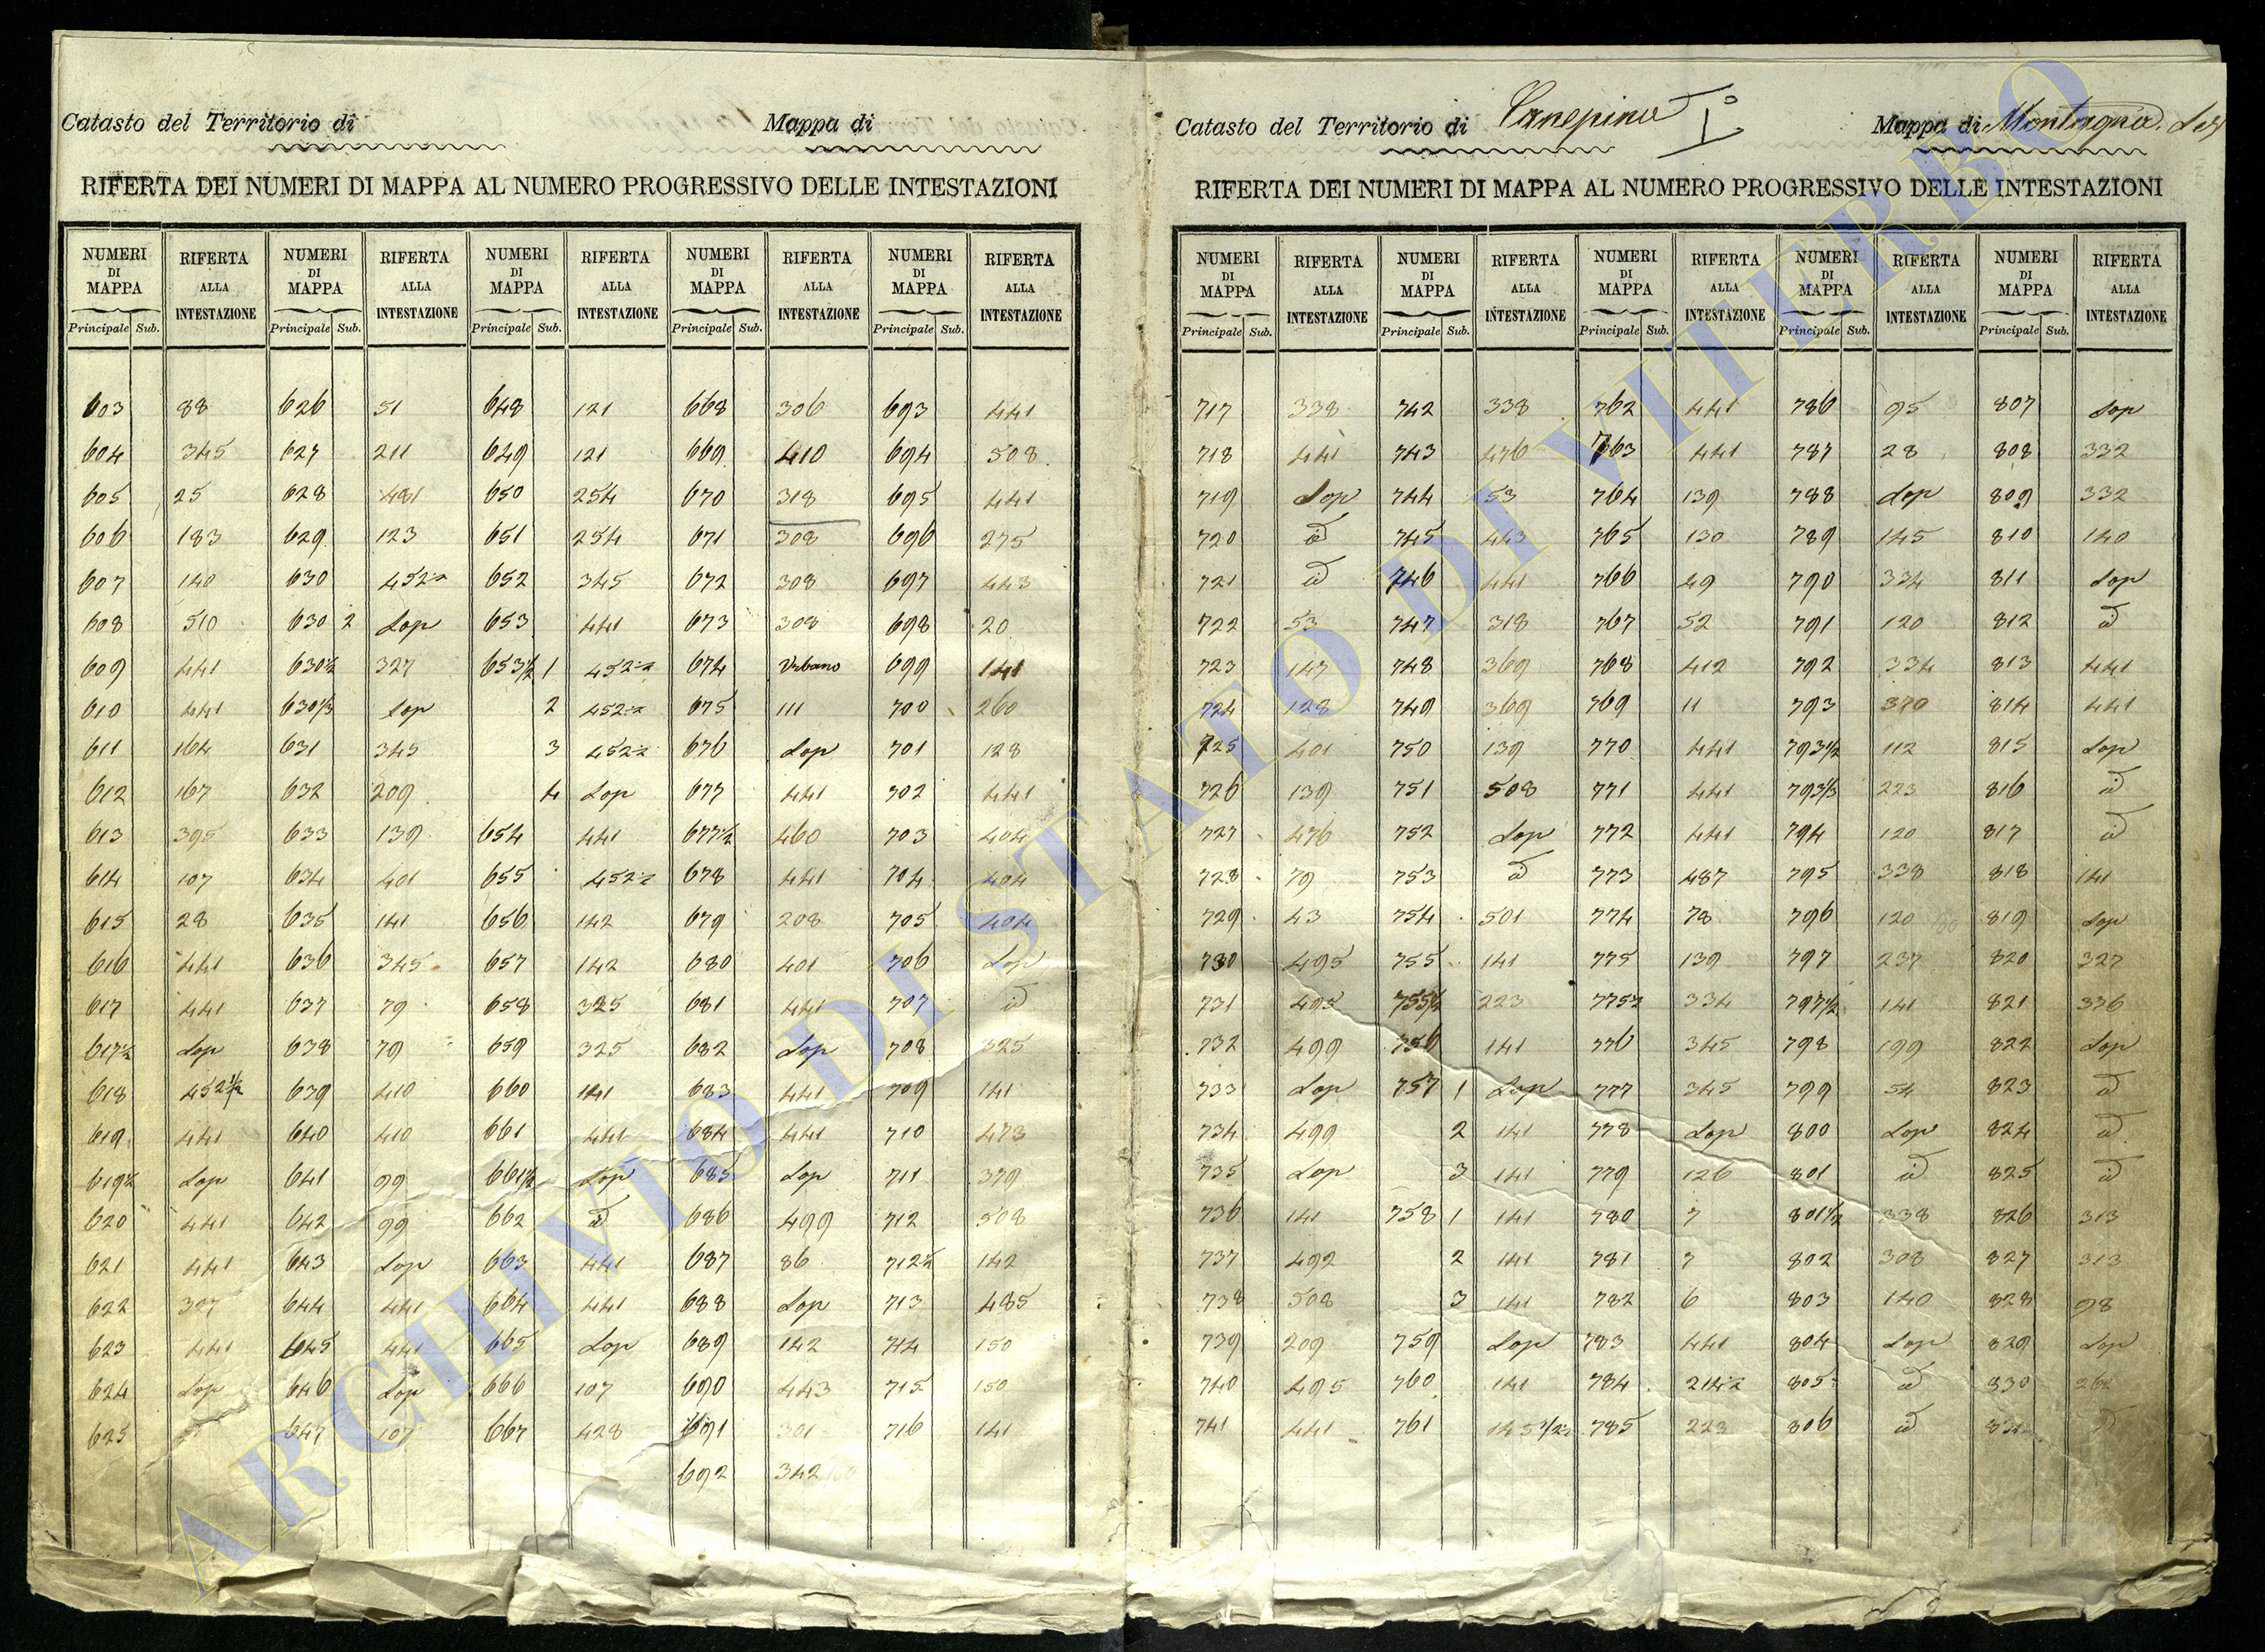 Catasto del Territorio di Mappa di
RIFERTA DEI NUMERI DI MAPPA AL NUMERO PROGRESSIVO DELLE INTESTAZIONI
NUMERI RIFERTA NUMERI RIFERTA NUMERI RIFERTA NUMERI RIFERTA NUMERI RIFERTA
DI ALLA DI ALLA DI ALLA DI ALLA DI ALLA
MAPPA INTESTAZIONE MAPPA INTESTAZIONE MAPPA INTESTAZIONE MAPPA INTESTAZIONE MAPPA INTESTAZIONE
Principale Sub. Principale Sub. Principale Sub. Principale Sub. Principale Sub.
603 88 626 51 648 121 668 306 693 441
604 345 627 211 649 121 669 410 694 508
605 25 628 481 650 254 670 318 695 441
606 183 629 123 651 254 671 308 696 275
607 140 630 452½ 652 345 672 308 697 443
608 510 630 2 Sop 653 441 673 308 698 20
609 441 630½ 327 653½ 1 452½ 674 Urbano 699 141
610 441 630⅓ Sop 2 452½ 675 111 700 260
611 164 631 345 3 452½ 676 Sop 701 128
612 167 632 209 4 Sop 677 441 702 441
613 395 633 139 654 441 677½ 460 703 404
614 107 634 401 655 452½ 678 441 704 404
615 28 635 141 656 142 679 208 705 404
616 441 636 345 657 142 680 401 706 Sop
617 441 637 79 658 325 681 441 707 id
617½ Sop 638 79 659 325 682 Sop 708 325
618 452½ 639 410 660 141 683 441 709 141
619 441 640 410 661 441 684 441 710 473
619½ Sop 641 99 661½ Sop 685 Sop 711 379
620 441 642 99 662 id 686 499 712 508
621 441 643 Sop 663 441 687 86 712½ 142
622 327 644 441 664 441 688 Sop 713 485
623 441 645 441 665 Sop 689 142 714 150
624 Sop 646 Sop 666 107 690 443 715 150
625 647 107 667 428 691 301 716 141
692 342
Catasto del Territorio di Canepina I° Mappa di Montagna
RIFERTA DEI NUMERI DI MAPPA AL NUMERO PROGRESSIVO DELLE INTESTAZIONI
NUMERI RIFERTA NUMERI RIFERTA NUMERI RIFERTA NUMERI RIFERTA NUMERI RIFERTA
DI ALLA DI ALLA DI ALLA DI ALLA DI ALLA
MAPPA INTESTAZIONE MAPPA INTESTAZIONE MAPPA INTESTAZIONE MAPPA INTESTAZIONE MAPPA INTESTAZIONE
Principale Sub. Principale Sub. Principale Sub. Principale Sub. Principale Sub.
717 338 742 338 762 441 786 95 807 Sop
718 441 743 476 763 441 787 28 808 332
719 Sop 744 53 764 139 788 Sop 809 332
720 id 745 443 765 130 789 145 810 140
721 id 746 441 766 49 790 334 811 Sop
722 53 747 318 767 52 791 120 812 id
723 147 748 369 768 412 792 334 813 441
724 128 749 369 769 11 793 370 814 441
725 401 750 139 770 441 793½ 112 815 Sop
726 139 751 508 771 441 793⅓ 223 816 id
727 476 752 Sop 772 441 794 120 817 id
728 79 753 id 773 487 795 338 818 141
729 43 754 501 774 78 796 120 819 Sop
730 495 755 141 775 139 797 237 820 327
731 495 755½ 223 775½ 334 797½ 141 821 336
732 499 756 141 776 345 798 199 822 Sop
733 Sop 757 1 Sop 777 345 799 54 823 id
734 499 2 141 778 Sop 800 Sop 824 id
735 Sop 3 141 779 126 801 id 825 id
736 141 758 1 141 780 7 801½ 338 826 313
737 492 2 141 781 7 802 308 827 313
738 508 3 141 782 6 803 140 828 98
739 209 759 Sop 783 441 804 Sop 829 Sop
740 495 760 141 784 214½ 805 id 830
741 441 761 785 223 806 id 831
ARCHIVIO DI STATO DI VITERBO